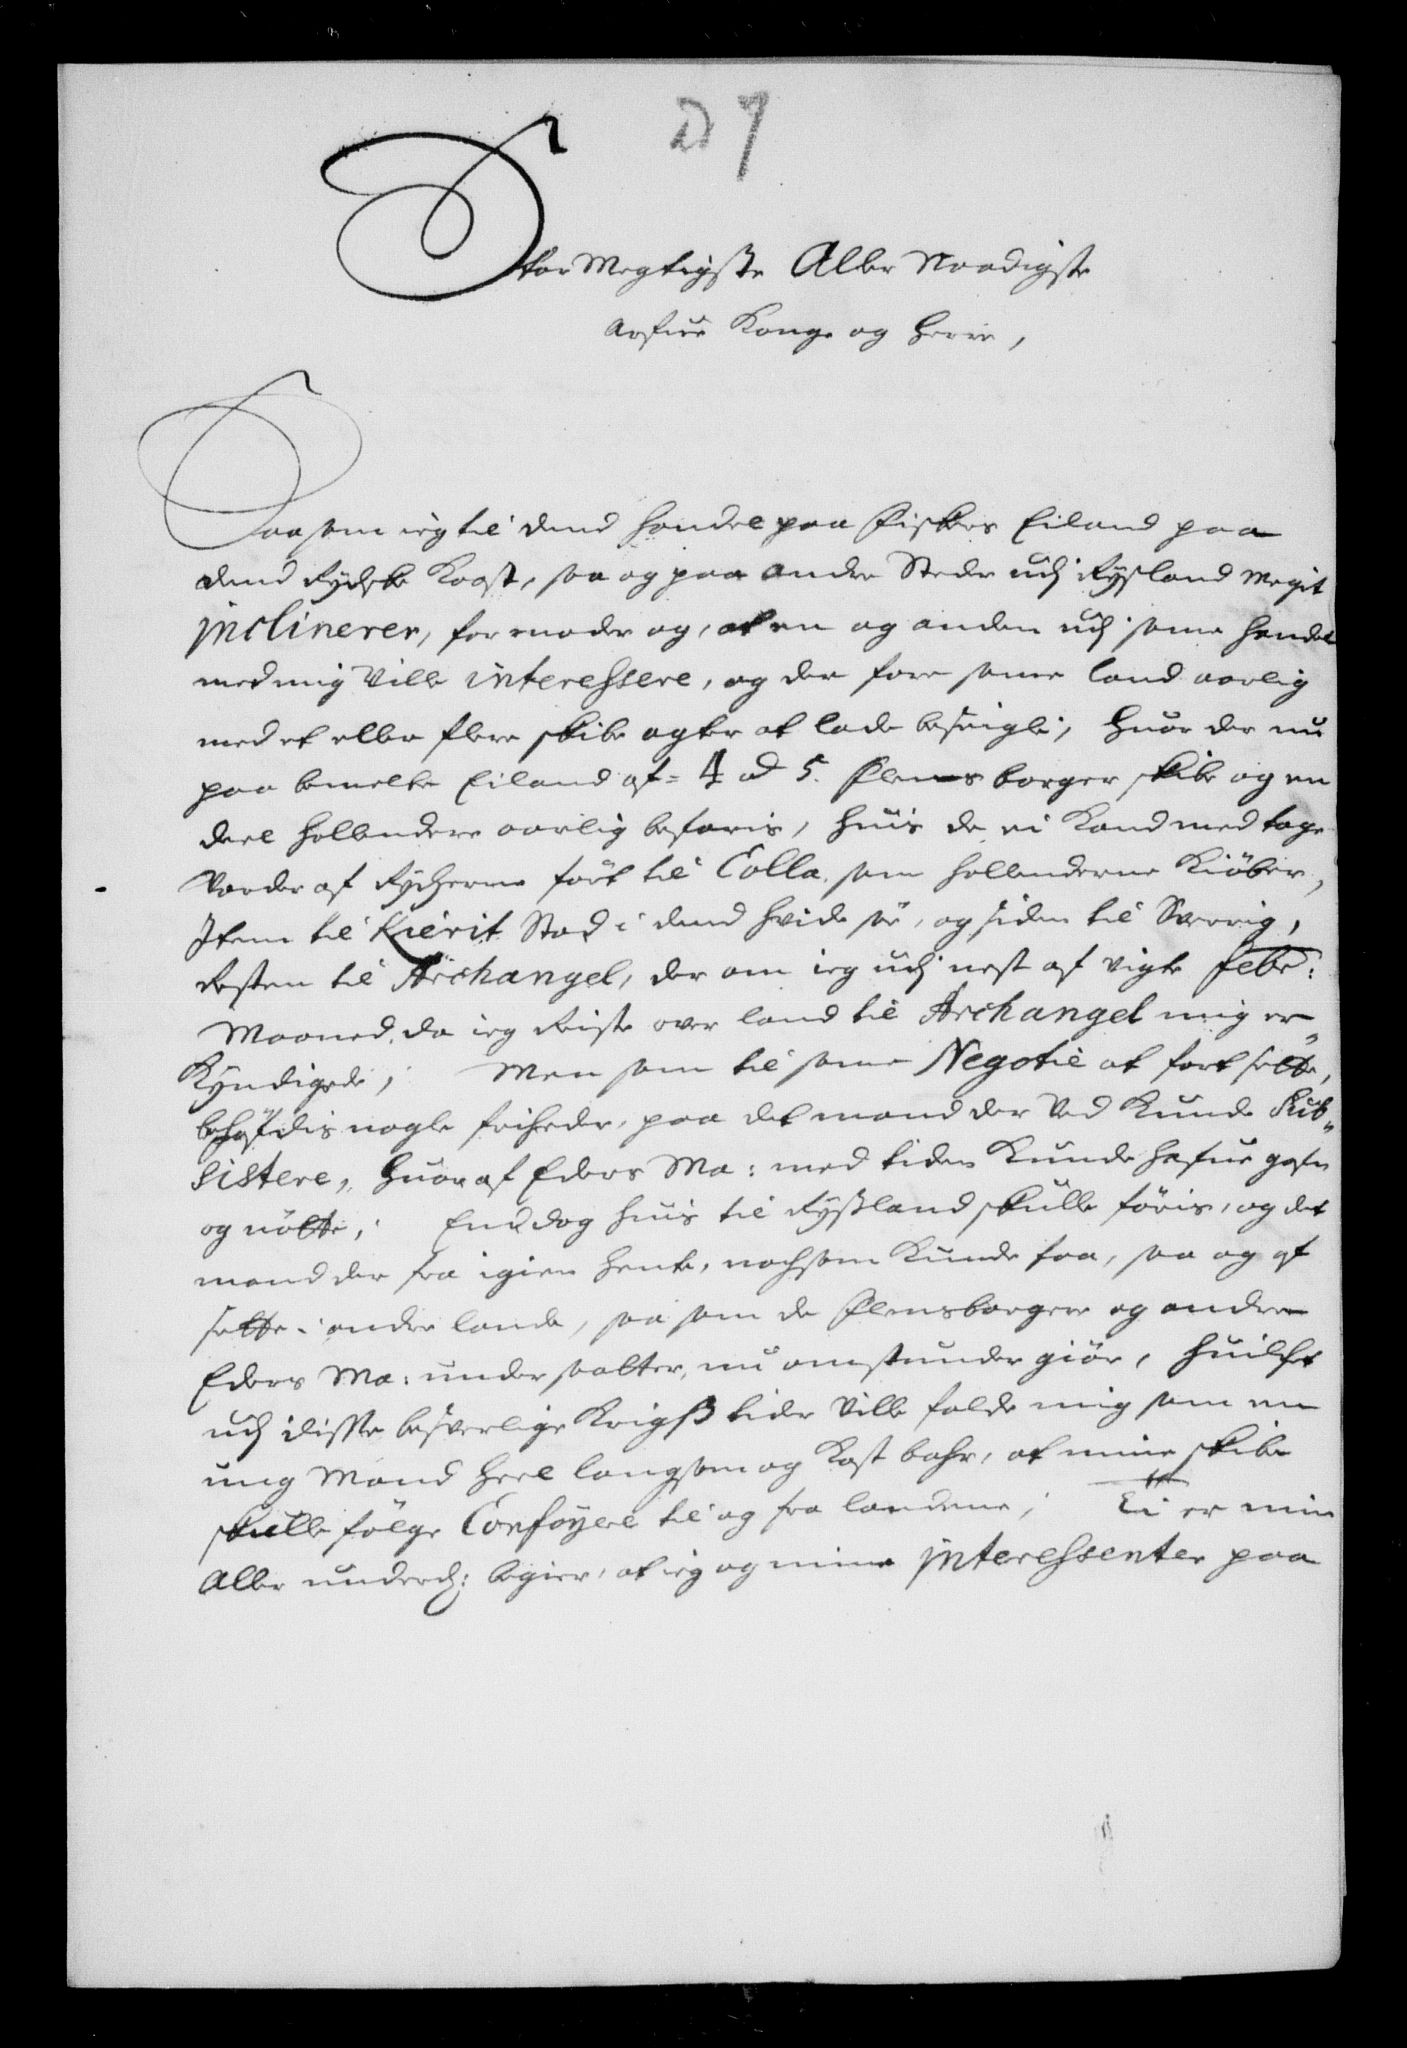 D 7
Stor Megtigste Aller Naadigste
Arfue Konge og Herre,
Saasom ieg til dend handel paa Fiskers Eiland paa
dend Rydske Kaast, saa og paa andre Steder udj Rysland megit
inclinerer, formoder og, at en og anden udj same handel
med mig ville interessere, og der fore same land aarlig
med et eller flere skibe agter at lade beseigle, Huor der nu
paa bemelte Eiland af = 4 a 5. Flensborger skibe og en
deel hollendere aarlig befaris, huis de ei Kand med tage
vorder af Rydserne fört til Colla. som hollenderne Kiöber,
Item til Kierit Stad i dend hvide sö, og siden til Sverrig,
Resten til Archangel, der om ieg udj nest af vigte Febr:
Maaned, da ieg Reiste over land til Archangel mig er„
Kyndigede; Men som til same Negotie at fort sette,
behöfdis nogle friheder, paa det mand der ved Kunde Sub„
sistere, Huoraf Eders Ma: med tiden Kunde hafue gafn
og nötte, Enddog huis til Rysland skulle föris, og det
mand der fra igien hente, nochsom Kunde faa, saa og af
sette i andre lande, saa som de Flensborgere og andre
Eders Ma: under saatter, nu omstunder giör, huilket
udj disse besverlige Krigs tider ville falde mig som en
ung Mand heel langsom og Kost bahr, at mine skibe
skulle fölge Confoyere til og fra landene, Ti er min
Aller underd: begier, at ieg og mine interessenter paa